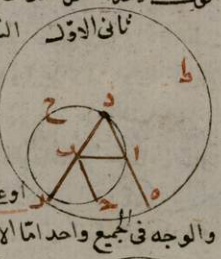 ثانى الاوّل
ط
ح
د
ب
ا
ر
ح
ه
والوجه فى الجميع واحد امّا الا